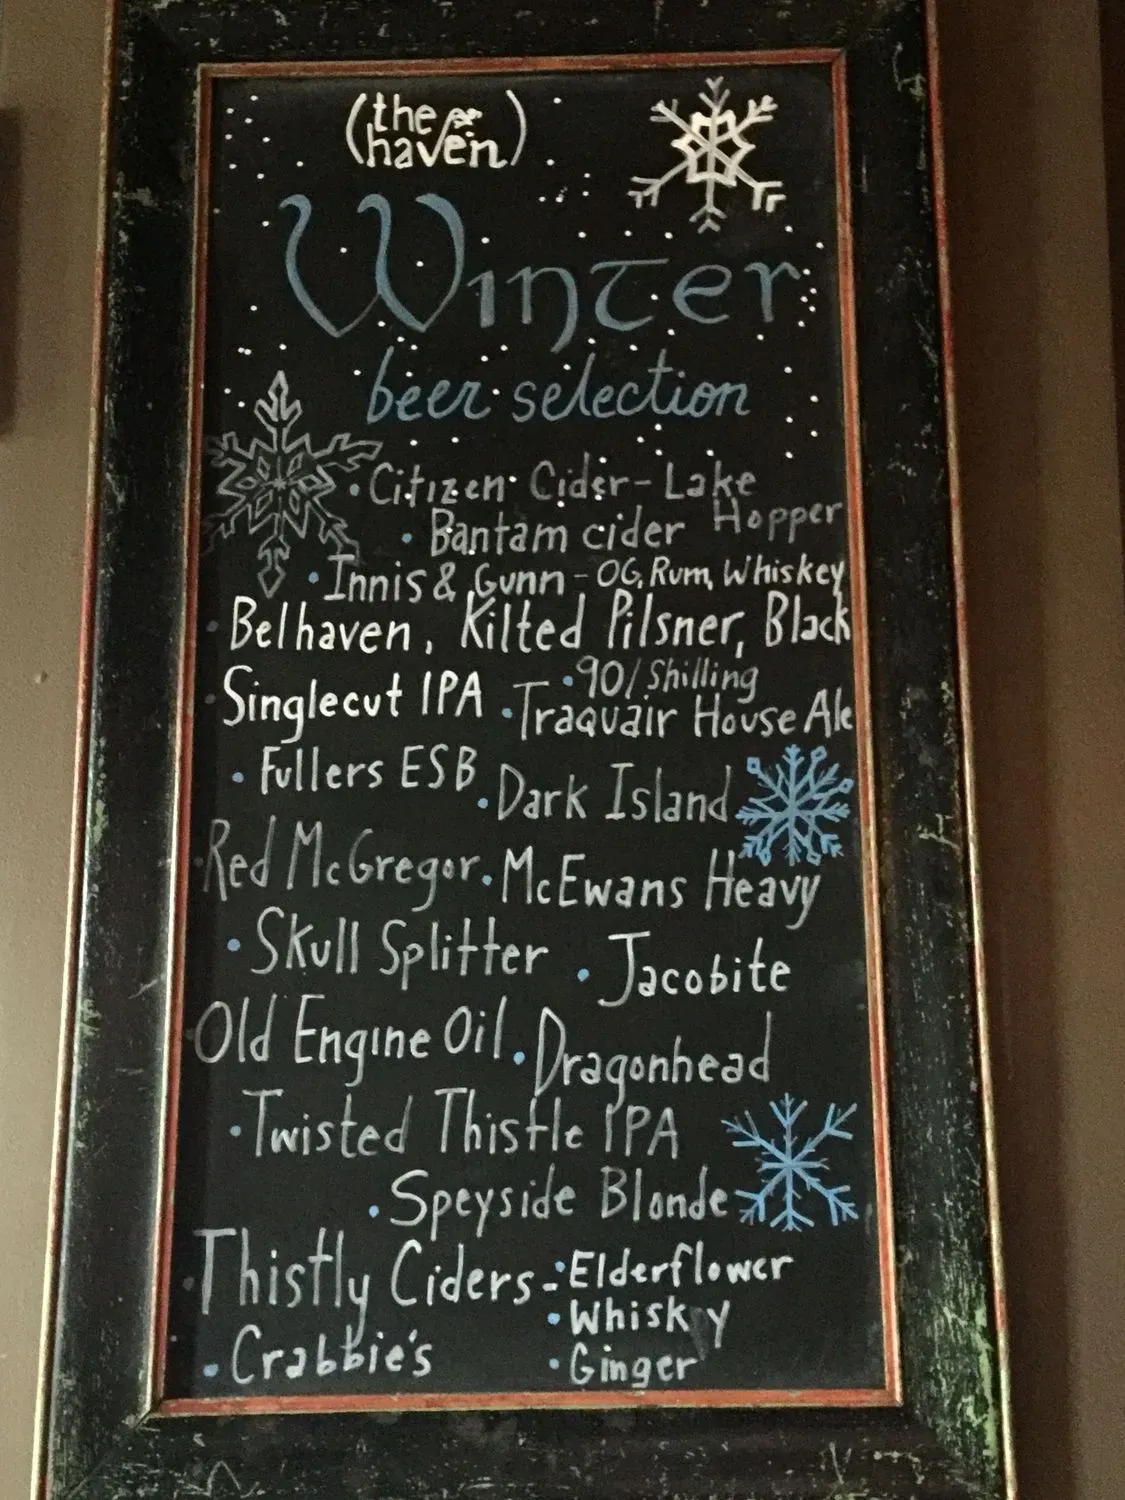 (the haven)
Winter
beer selection
• Citizen Cider - Lake Hopper
• Bantam cider
• Innis & Gunn - OG, Rum, Whiskey
• Belhaven, Kilted Pilsner, Black
• Singlecut IPA
• 90/ Shilling
• Traquair House Ale
• Fullers ESB
• Dark Island
• Red McGregor
• McEwans Heavy
• Skull Splitter
• Jacobite
• Old Engine Oil
• Dragonhead
• Twisted Thistle IPA
• Speyside Blonde
• Thistly Ciders -
• Elderflower
• Whisky
• Ginger
• Crabbie's